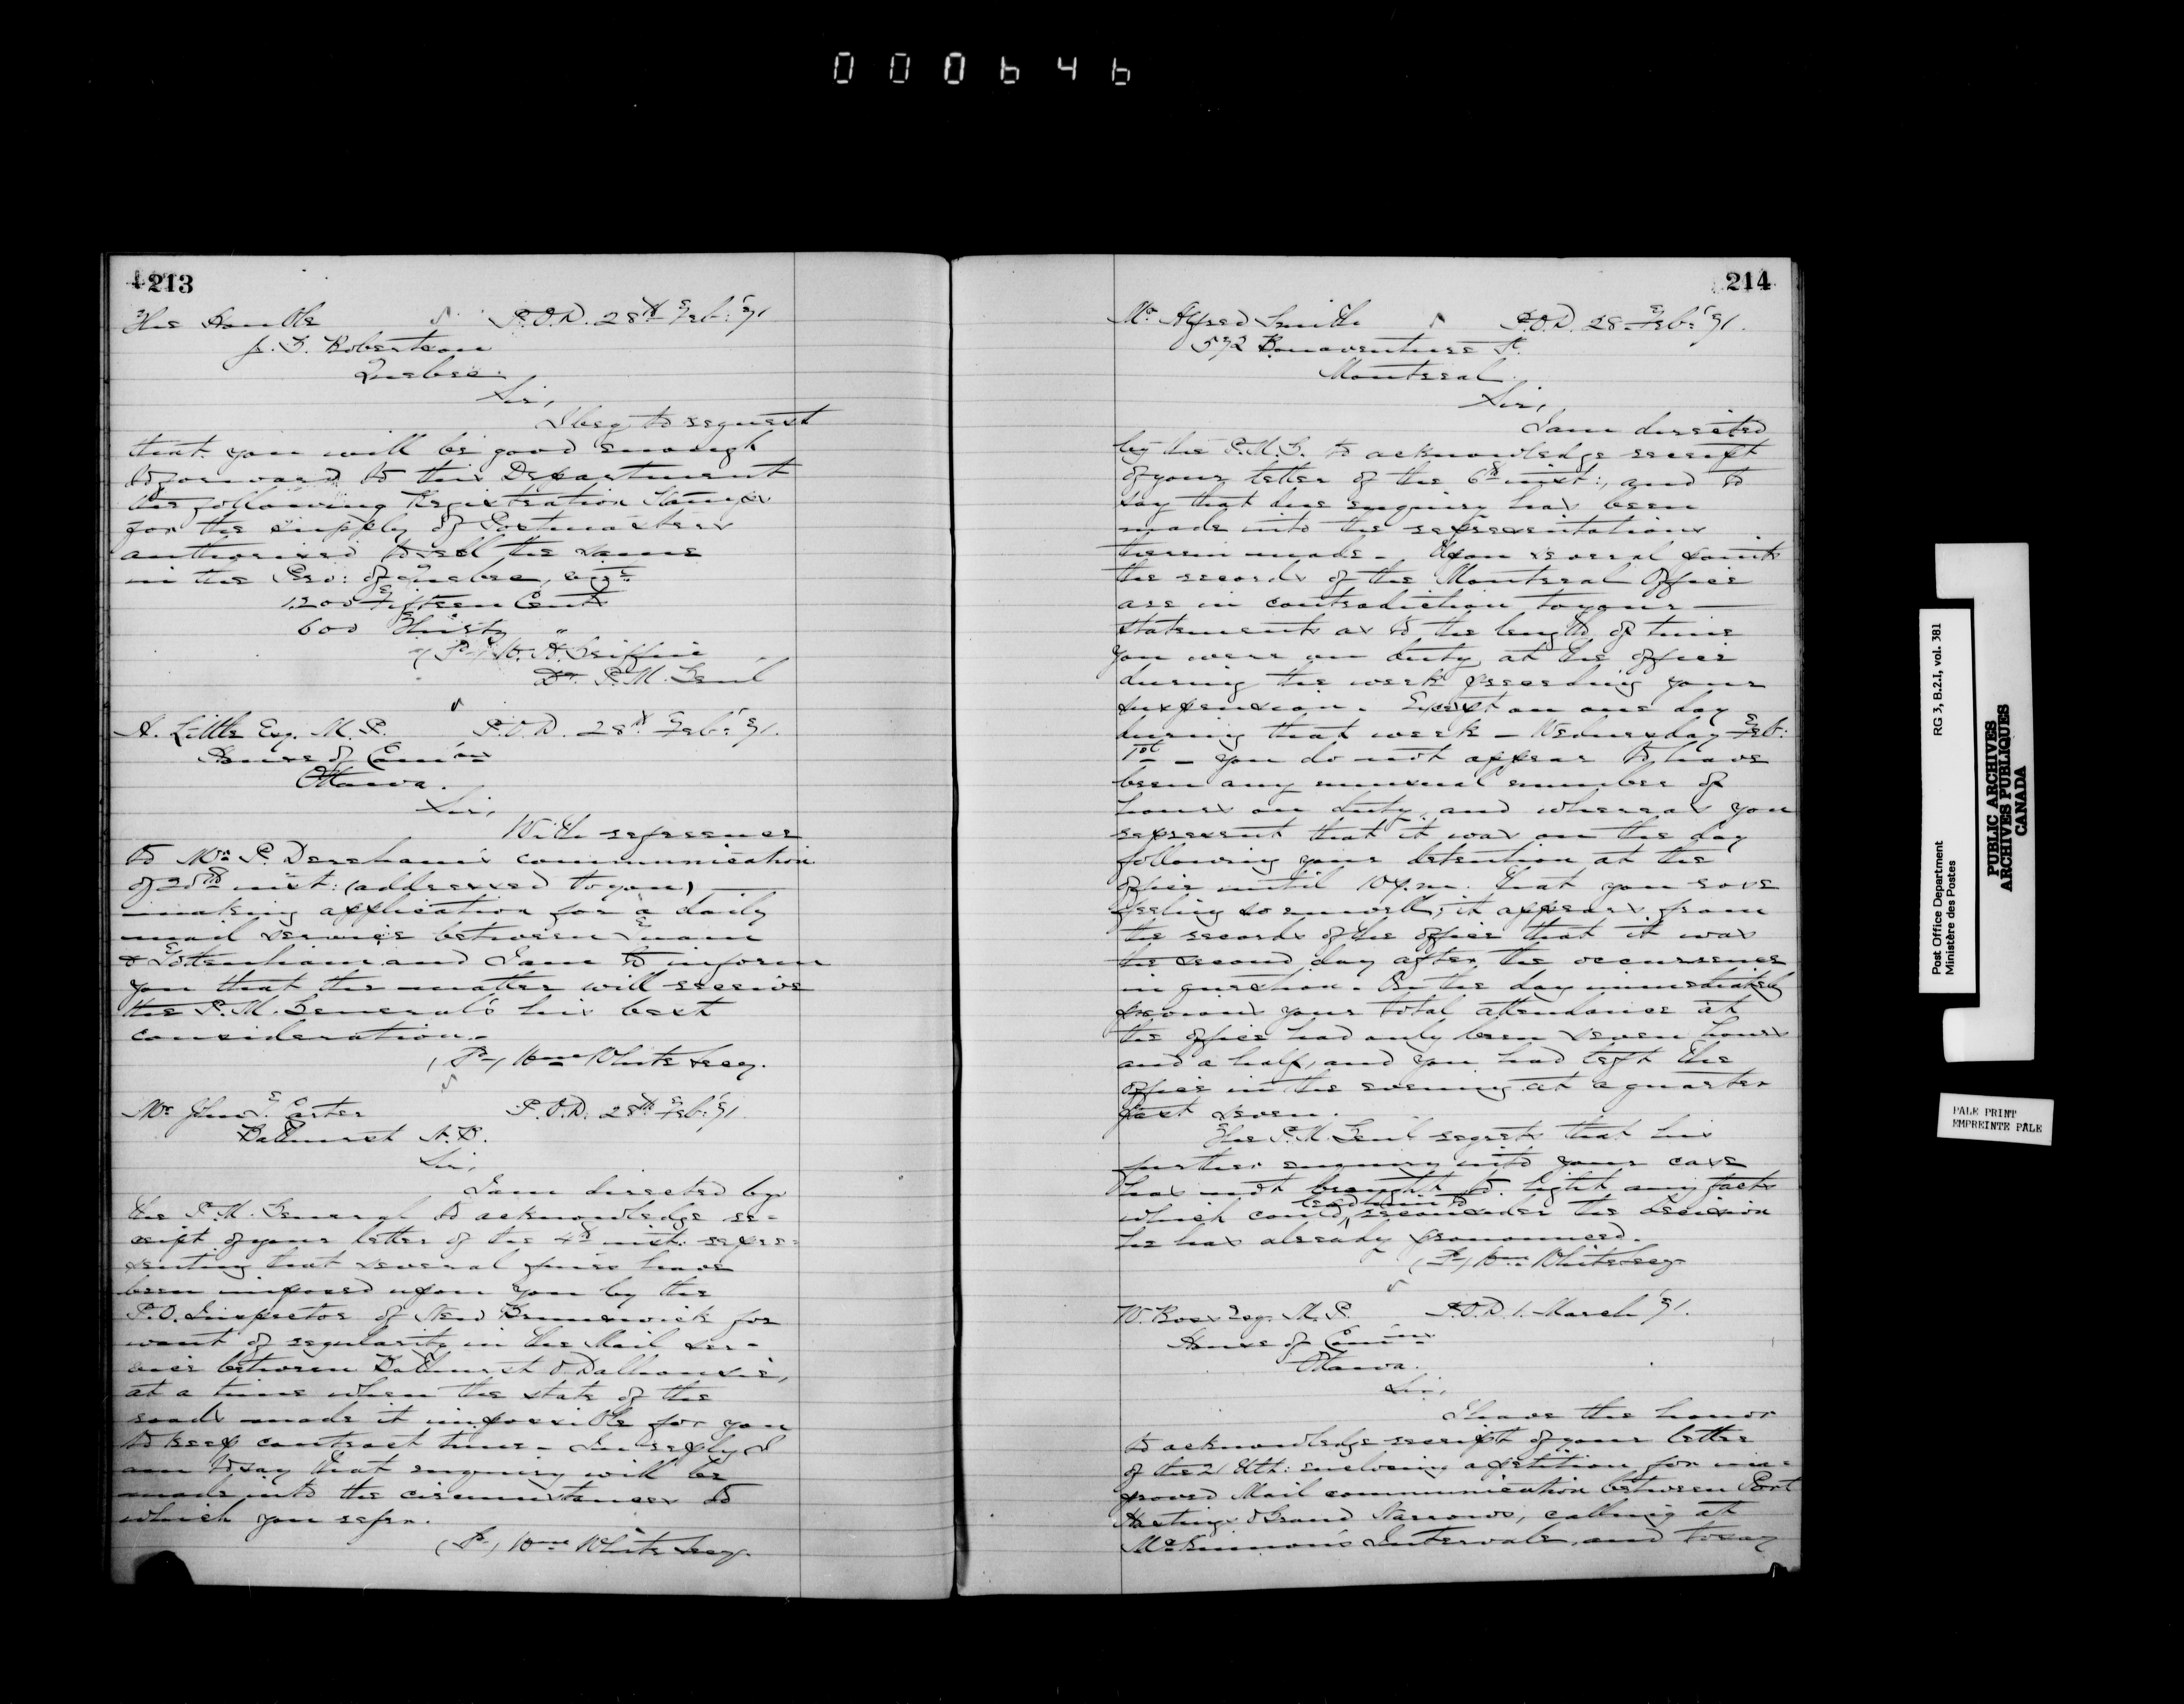 000646
213
The Honble P.O.D. 28th Feb: '71
J. G. Robertson
Quebec.
Sir,
I beg to request
that you will be good enough
to forward to this Department
the following Registration Stamps
for the supply of Postmasters
authorised to sell the same
in the Prov: of Quebec, viz:
1200 Fifteen Cents
600 Thirty "
W. H. Griffin
Dy. P.M. Genl
A. Little Esq. M.P. P.O.D. 28th Feb: '71.
House of Com'ons
Ottawa.
Sir,
With reference
to Mr. P. communication
of 25th inst: (addressed to you)
making application for a daily
mail service between
& Tottenham and I am to inform
you that the matter will receive
the P.M. General's his best
consideration.
Wm White Secy.
Mr John T. Carter P.O.D. 28th Feb: '71
Bathurst N.B.
Sir,
I am directed by
the P.M. General to acknowledge re-
ceipt of your letter of the 4th inst: repre-
senting that several fines have
been imposed upon you by the
P.O. Inspector of New Brunswick for
want of regularity in the Mail ser-
vice between Bathurst & Dalhousie,
at a time when the state of the
roads made it impossible for you
to keep contract time - In reply I
am to say that enquiry will be
made into the circumstances to
which you refer.
Wm White Secy.
214
Mr Alfred Smith P.O.D. 28 Feb: '71.
572 Bonaventure St.
Montreal.
Sir,
I am directed
by the P.M.G. to acknowledge receipt
of your letter of the 6th inst:, and to
say that due enquiry has been
made into the representations
therein made - Upon several points
the records of the Montreal Office
are in contradiction to your
statements as to the length of time
you were on duty at the office
during the week preceding your
suspension. Except on one day
during that week - Wednesday Feb:
1st - you do not appear to have
been any unusual number of
hours on duty, and whereas you
represent that it was on the day
following your detention at the
office until 10 p.m. that you rose
feeling so unwell, it appears from
the records of the office that it was
the second day after the occurrence
in question. On the day immediately
previous your total attendance at
the office had only been seven hours
and a half, and you had left the
office in the evening at a quarter
past seven.
The P.M. Genl regrets that his
further enquiry into your case
has not brought to light any facts
which could lead him to reconsider the decision
he has already pronounced.
Wm White Secy
W. Ross Esq. M.P. P.O.D. 1. March '71.
House of Com'ons
Ottawa.
Sir,
I have the honor
to acknowledge receipt of your letter
of the 21 Ult: enclosing a petition for im-
proved Mail communication between Port
Hastings & Grand Narrows, calling at
McKinnon's Intervale, and to say
Post Office Department RG 3, B.2.1, vol. 381
Ministère des Postes
PUBLIC ARCHIVES
ARCHIVES PUBLIQUES
CANADA
PALE PRINT
EMPREINTE PALE